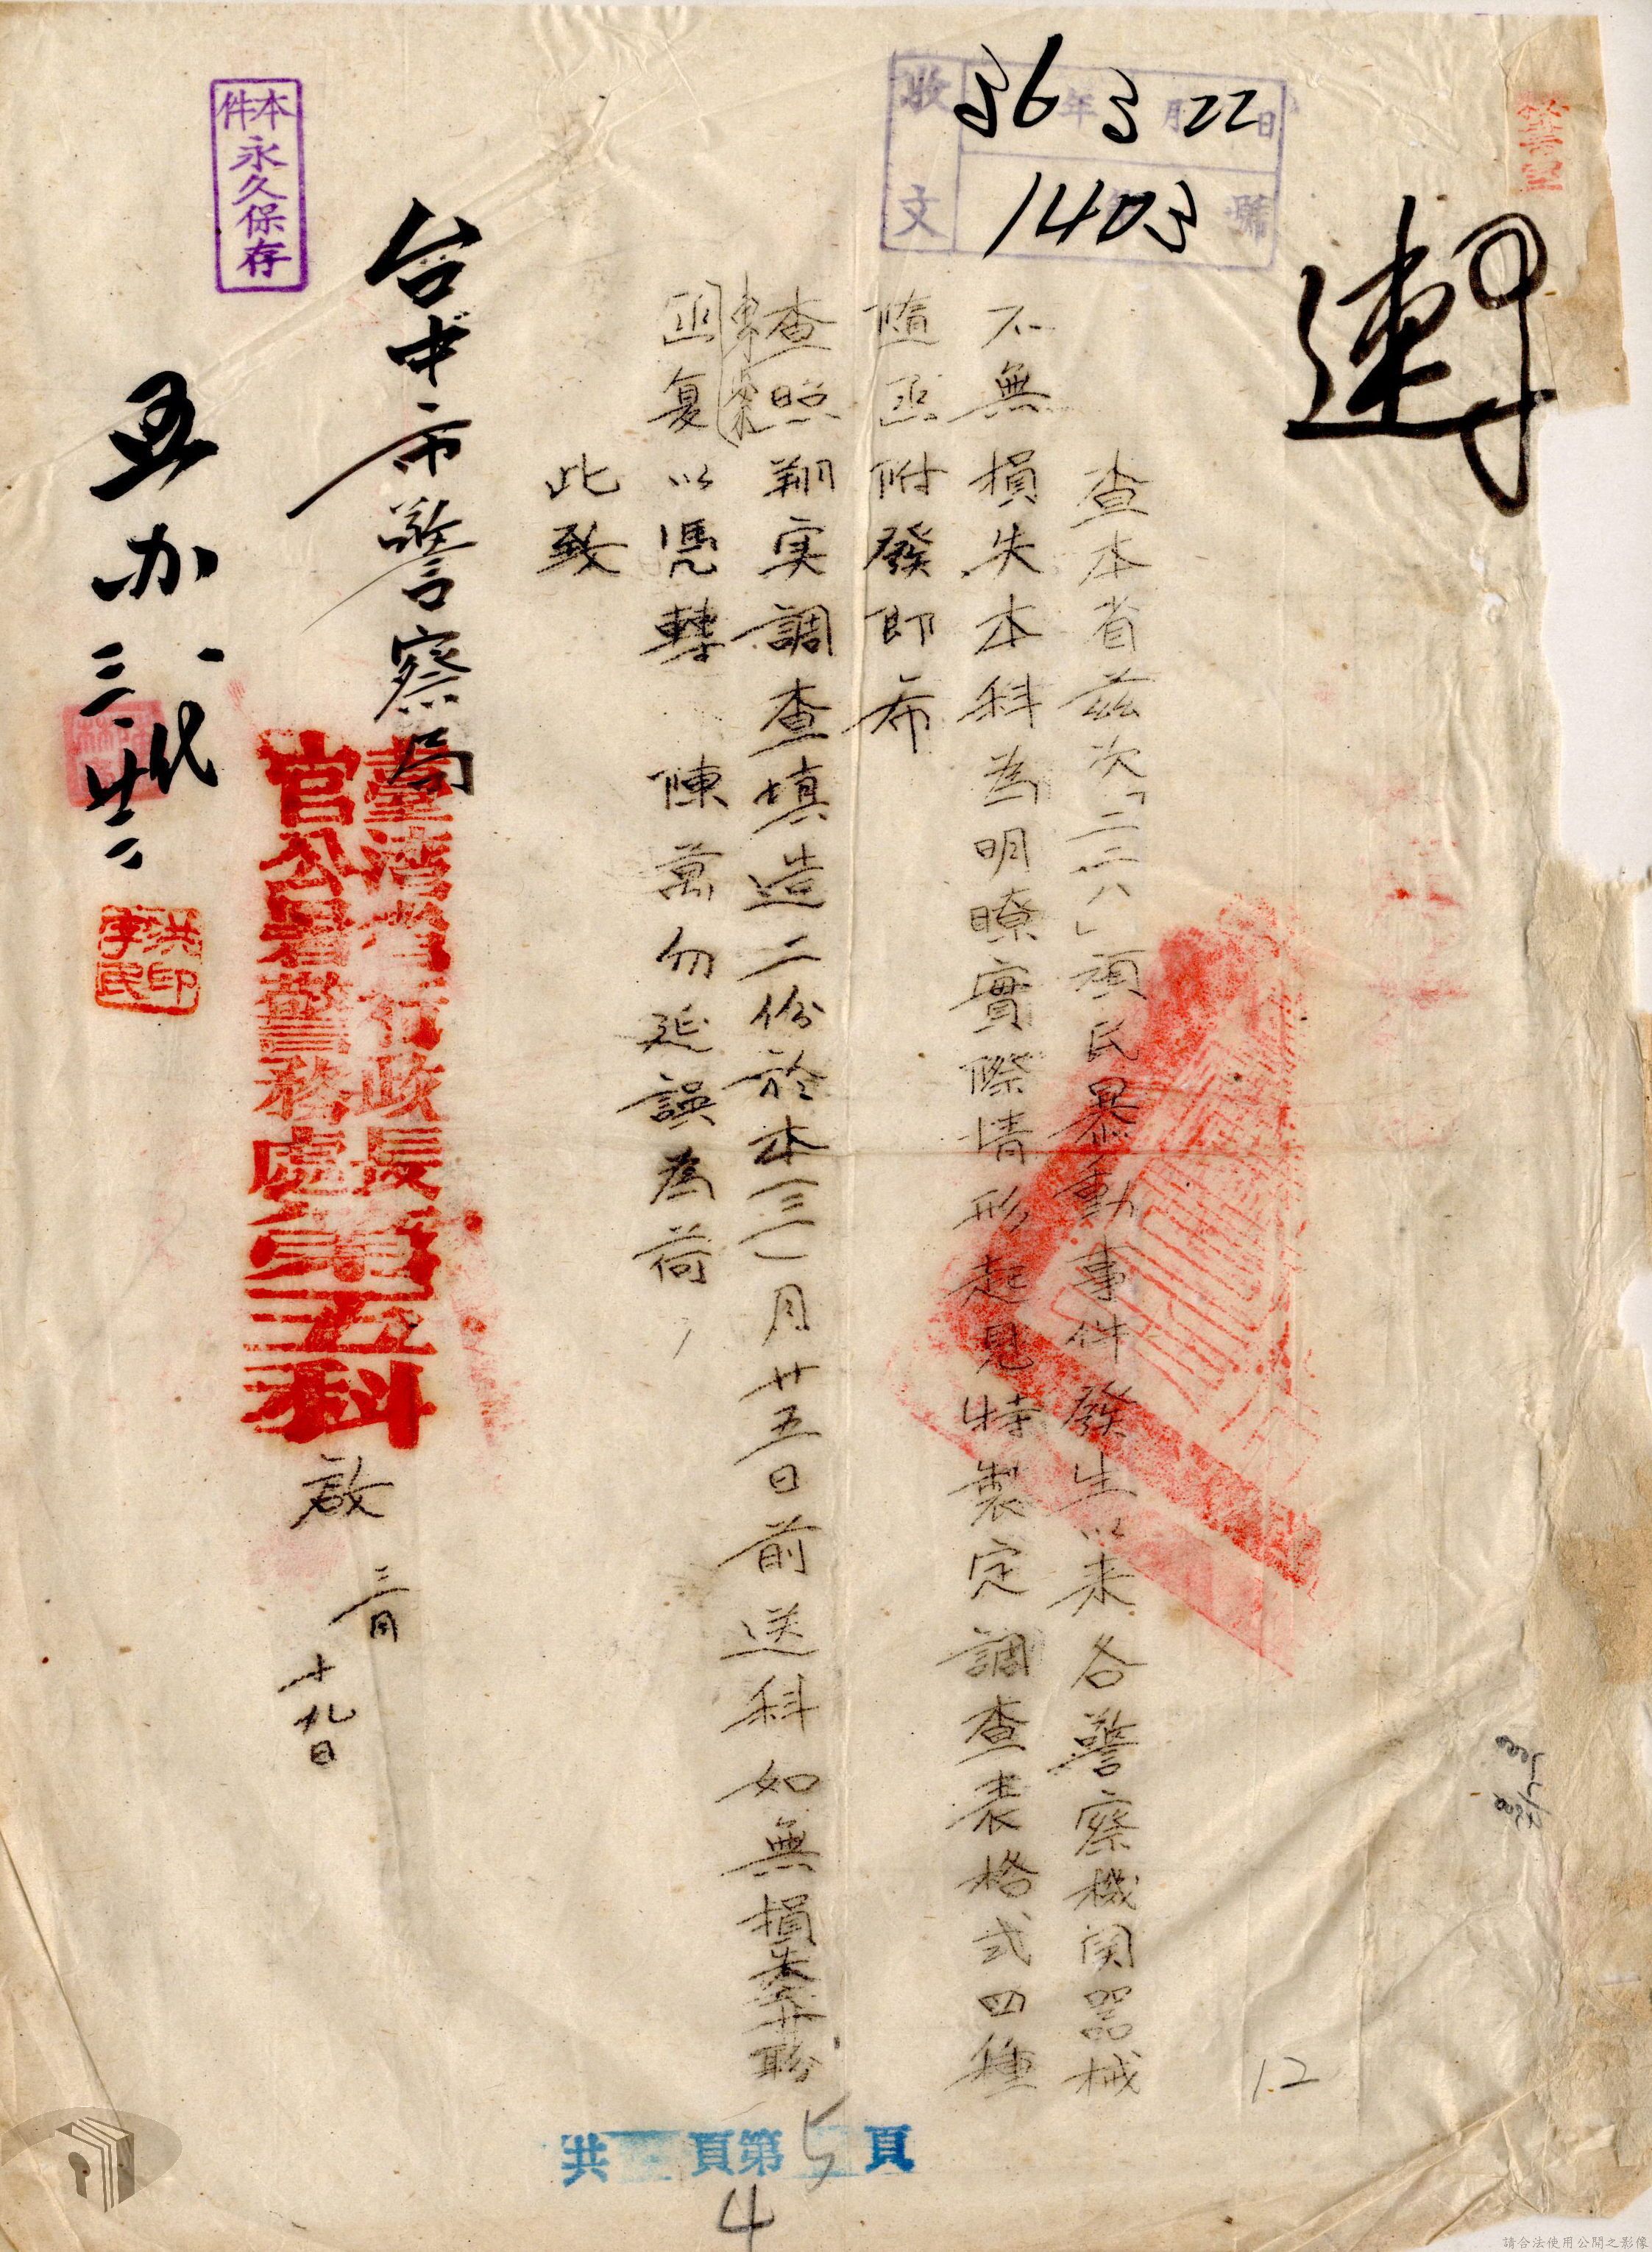 收文 36年3月22日
1403號
速
查本省茲次「二二八」頑民暴動事件發生以來各警察機関器械
不無損失本科為明瞭實際情形起見特製定調查表格式四種
隨函附發即希
查照翔实調查填造二份於本(三)月廿五日前送科如無損失亦希聯
函复以凴轉陳萬勿延誤為荷
此致
台中市警察局
臺灣省行政長
官公署警務處第五科
啟 三月十九日
本件永久保存
洪字民印
共 頁第5頁
4
12
請合法使用公開之影像